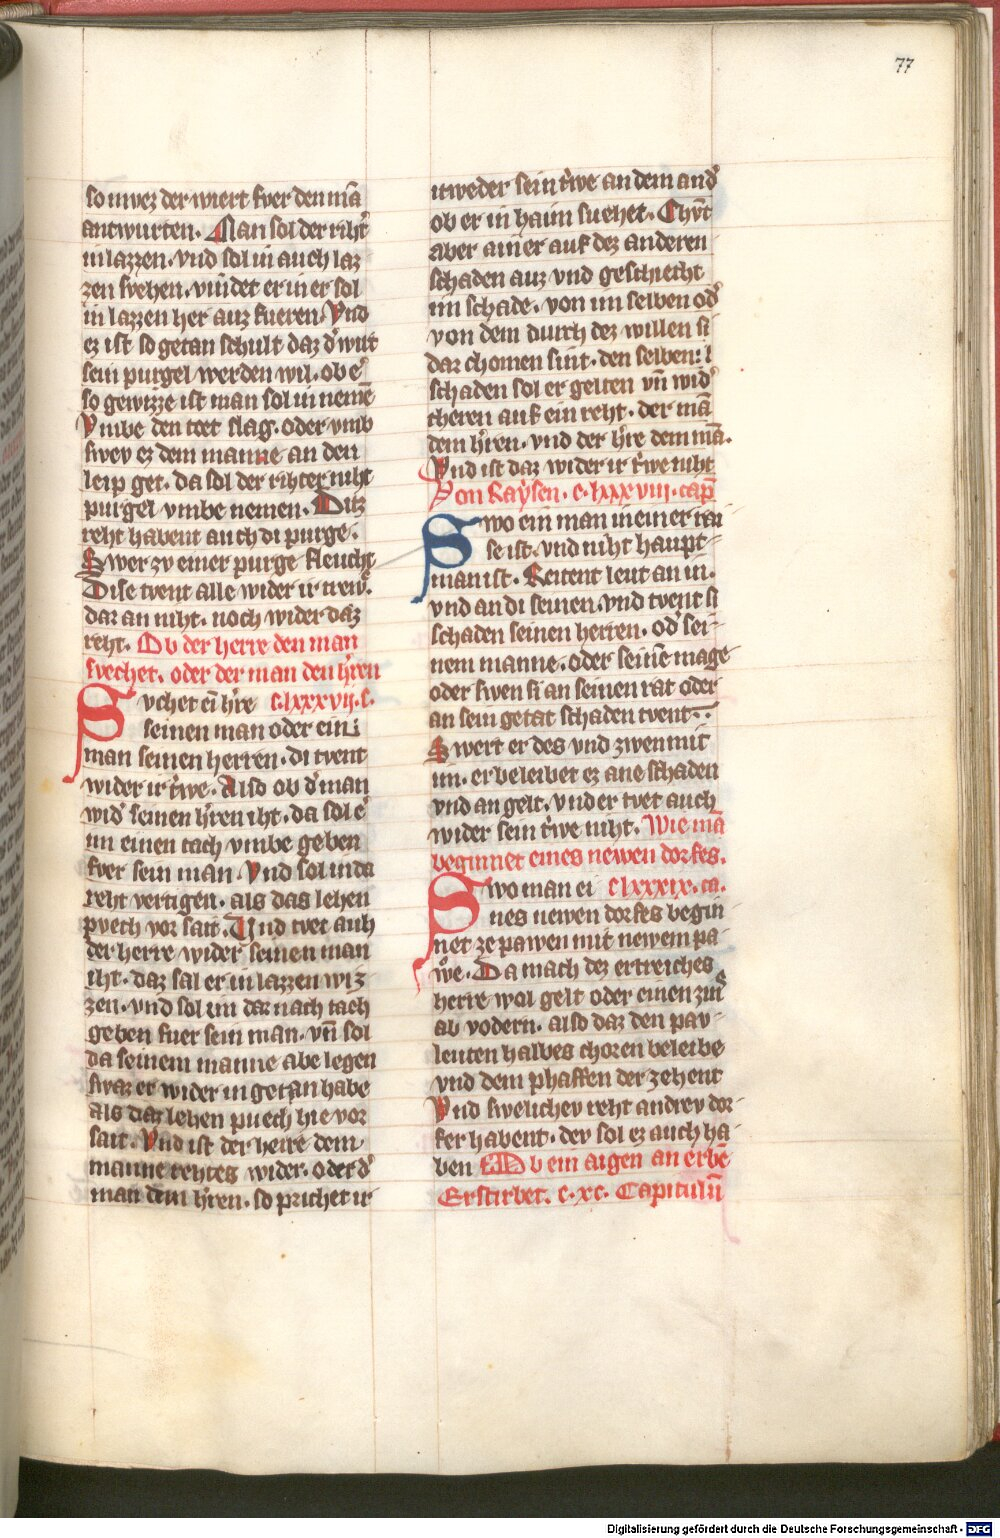 77
so muez der wiert fver den mā
antwurten. Man sol der riht͛
in lazzen. vnd sol in auch laz
zen svehen. vindet er in er sol
in lazzen her auz fueren. Vnd
ez ist so getan schult daz d͛ wirt
sein purgel werden wil. ob e͛
so gewizze ist man sol in nemē
Vmbe den toet slag. oder vmb
swev ez dem manne an den
leip get. da sol der rihter niht
purgel vmbe nemen. Ditz
reht habent auch di purge.
Swer zv einer purge fleucht
Dise tvent alle wider ir trew͛.
dar an niht. noch wider daz
reht. Ob der herre den man
svechet. oder der man den h͛ren
Svchet ei h͛re c.lxxxvij.c.
seinen man oder ein
man seinen herren. di tvent
wider ir t͛we. Also ob d͛ man
wid͛ seinen h͛ren iht. da sol e͛
im einen tach vmbe geben
fver sein man. Vnd sol in da
reht vertigen. als das lehen
pvech vor sait. Vnd tvet auh
der herre wider seinen man
iht. daz sal er in lazzen wiz
zen. vnd sol im dar nach tach
geben fuer sein man. vn̄ sol
da seinem manne abe legen
swaz er wider in getan habe
als daz lehen puech hie vor
sait. Vnd ist der herre dem
manne rehtes wider. oder d͛
man dem h͛ren. so prichet ir
itweder sein t͛we an dem and͛
ob er in haim suehet. Chv̄t
aber ainer auf dez anderen
schaden auz vnd geschiecht
im schade. von im selben od͛
von dem durch dez willen si
dar chomen sint. den selben
schaden sol er gelten vn̄ wid͛
cheren auf ein reht. der mā
dem h͛ren. vnd der h͛re dem mā.
Vnd ist daz wider ir t͛we niht
Von Raysen. c. lxxxviii. cap̄
Swo ein man in einer rai
se ist. vnd niht haupt
man ist. Reitent leut an in.
vnd an di seinen. vnd tvent si
schaden seinen herren. od͛ sei
nem manne. oder seinē mage
oder swen si an seinen rat oder
an sein getat schaden tvent.
Swert er des vnd zwen mit
im. er beleibet ez ane schaden
vnd an gelt. vnd er tvet auch
wider sein t͛we niht. Wie mā
beginnet eines newen dorfes.
Swo man ei clxxxix. ca.
nes newen dorfes begin
net ze pawen mit newem pa
we. Da mach dez ertreiches
herre wol gelt oder einen zins
ab vodern. also daz den pav
leuten halbes choren beleibe
vnd dem phaffen der zehent
Vnd swelichev reht andrev dor
fer habent. dev sol ez auch ha
ben Ob ein aigen an erbē
Erstirbet. c. xc. Capitulū
Digitalisierung gefördert durch die Deutsche Forschungsgemeinschaft - DFG